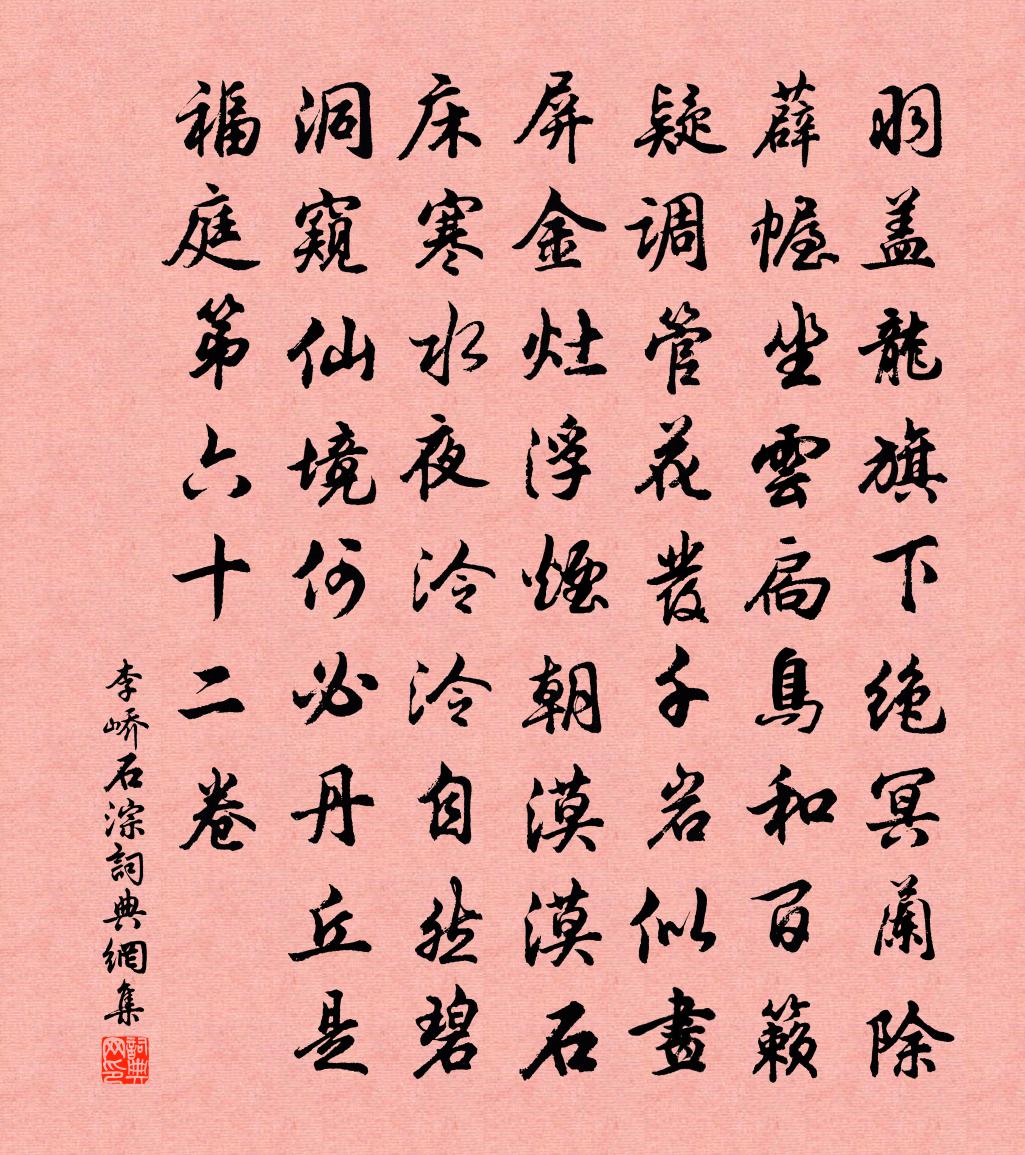 羽盖龍旗下绝冥蘭除
薜幄坐雲扃鳥和百籁
疑调管花發千岩似畫
屏金灶浮煙朝漠漠石
床寒水夜泠泠自然碧
洞窺仙境何必丹丘是
福庭第六十二卷
李峤石淙詞典網集
詞典网印